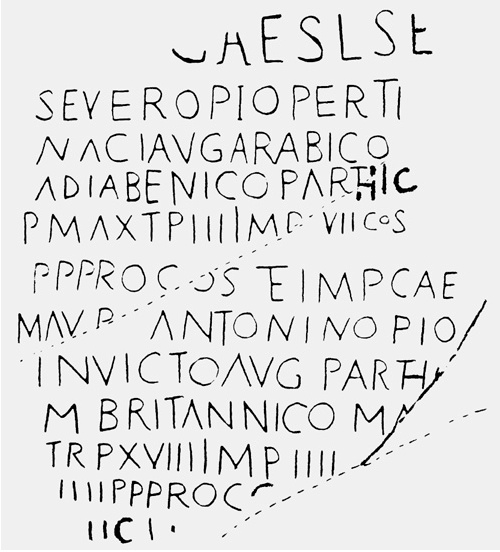 CAESLSE
SEVEROPIOPERTI
NACIAVGARABICO
ADIABENICOPARTHIC
PMAXTPIIIIIMP VIICOS
PPPROCOS ETIMPCAE
MAVR ANTONINOPIO
INVICTOAVG PARTH
M BRITANNICO MA
TRPXVIIIIIMPIIII
IIIIPPPROCO
IICI